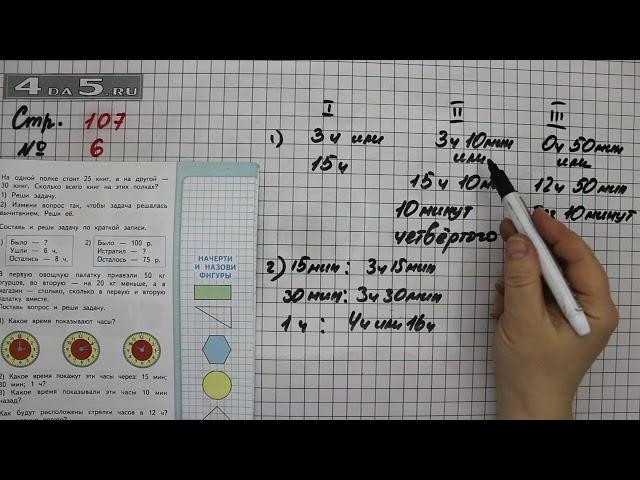 4 DA 5.RU
Стр. 107
№ 6
На одной полке стоит 25 книг, а на другой —
30 книг. Сколько всего книг на этих полках?
1) Реши задачу.
2) Измени вопрос так, чтобы задача решалась
вычитанием. Реши её.
Составь и реши задачу по краткой записи.
1) Было — ?
Ушли — 6 ч.
Остались — 8 ч.
2) Было — 100 р.
Истратил — ?
Осталось — 75 р.
В первую овощную палатку привезли 50 кг
огурцов, во вторую — на 20 кг меньше, а в
магазин — столько, сколько в первую и вторую
палатку вместе.
Поставь вопрос и реши задачу.
1) Какое время показывают часы?
2) Какое время покажут эти часы через: 15 мин;
30 мин; 1 ч?
3) Какое время показывали эти часы 10 мин
назад?
Как будут расположены стрелки часов в 12 ч?
НАЧЕРТИ
И НАЗОВИ
ФИГУРЫ
I
II
III
1) 3 ч или
15 ч
3 ч 10 мин
или
15 ч 10
10 минут
четвёртого
0 ч 50 мин
или
12 ч 50 мин
10 минут
2) 15 мин: 3 ч 15 мин
30 мин: 3 ч 30 мин
1 ч : 4 ч или 16 ч